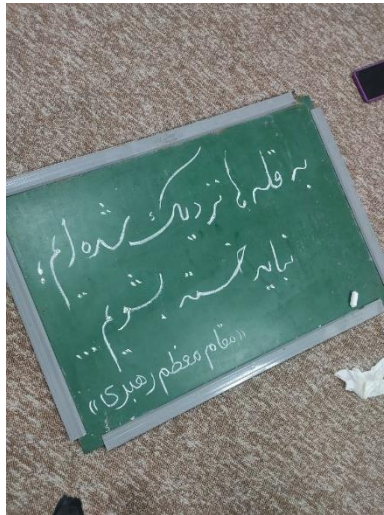 به قله ها نزدیک شده ایم؛
نباید خسته بشویم...
«مقام معظم رهبری»